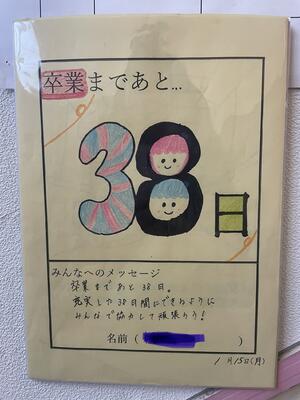 卒業まであと...
38
日
みんなへのメッセージ
卒業まであと38日。
充実した38日間にできるように
みんなで協力して頑張ろう!
名前( )
1月15日(月)